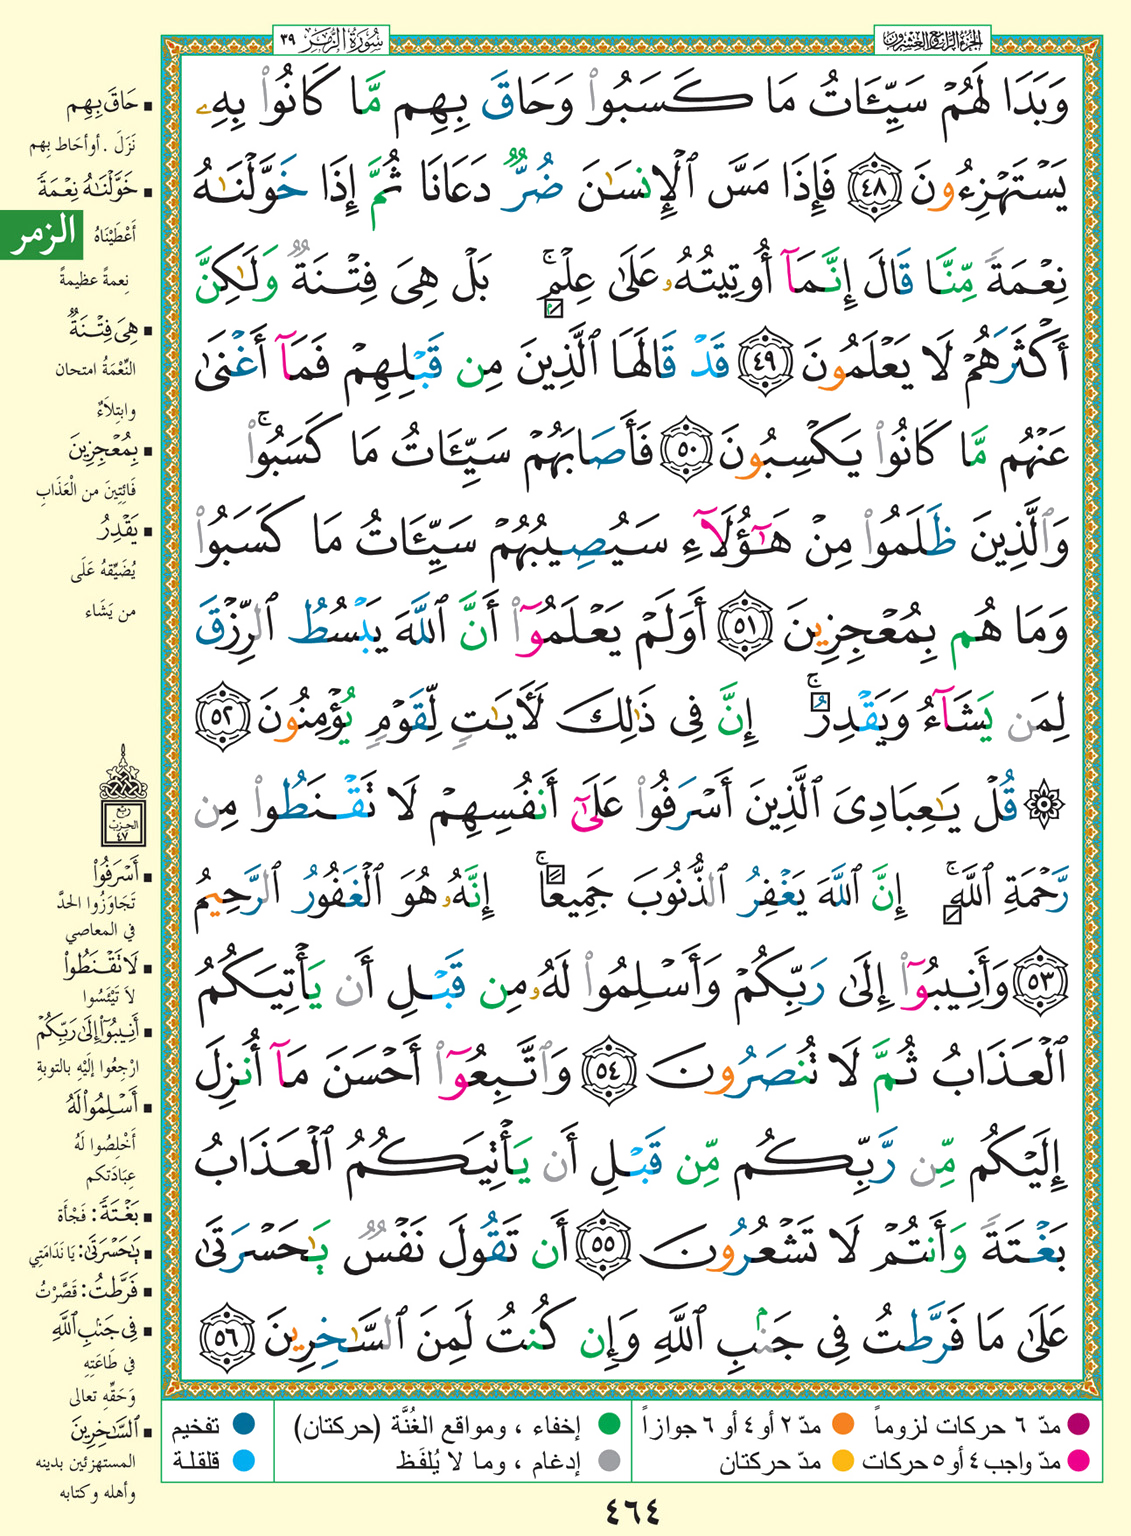 سُورَةُ الزُّمَر ٣٩
الجزء الرابع والعشرون
وَبَدَا لَهُمْ سَيِّـَٔاتُ مَا كَسَبُوا۟ وَحَاقَ بِهِم مَّا كَانُوا۟ بِهِۦ
يَسْتَهْزِءُونَ ٤٨ فَإِذَا مَسَّ ٱلْإِنسَٰنَ ضُرٌّ دَعَانَا ثُمَّ إِذَا خَوَّلْنَٰهُ
نِعْمَةً مِّنَّا قَالَ إِنَّمَآ أُوتِيتُهُۥ عَلَىٰ عِلْمٍۭ ۚ بَلْ هِىَ فِتْنَةٌ وَلَٰكِنَّ
أَكْثَرَهُمْ لَا يَعْلَمُونَ ٤٩ قَدْ قَالَهَا ٱلَّذِينَ مِن قَبْلِهِمْ فَمَآ أَغْنَىٰ
عَنْهُم مَّا كَانُوا۟ يَكْسِبُونَ ٥٠ فَأَصَابَهُمْ سَيِّـَٔاتُ مَا كَسَبُوا۟ ۚ
وَٱلَّذِينَ ظَلَمُوا۟ مِنْ هَٰٓؤُلَآءِ سَيُصِيبُهُمْ سَيِّـَٔاتُ مَا كَسَبُوا۟
وَمَا هُم بِمُعْجِزِينَ ٥١ أَوَلَمْ يَعْلَمُوٓا۟ أَنَّ ٱللَّهَ يَبْسُطُ ٱلرِّزْقَ
لِمَن يَشَآءُ وَيَقْدِرُ ۚ إِنَّ فِى ذَٰلِكَ لَـَٔايَٰتٍ لِّقَوْمٍ يُؤْمِنُونَ ٥٢
۞ قُلْ يَٰعِبَادِىَ ٱلَّذِينَ أَسْرَفُوا۟ عَلَىٰٓ أَنفُسِهِمْ لَا تَقْنَطُوا۟ مِن
رَّحْمَةِ ٱللَّهِ ۚ إِنَّ ٱللَّهَ يَغْفِرُ ٱلذُّنُوبَ جَمِيعًا ۚ إِنَّهُۥ هُوَ ٱلْغَفُورُ ٱلرَّحِيمُ
٥٣ وَأَنِيبُوٓا۟ إِلَىٰ رَبِّكُمْ وَأَسْلِمُوا۟ لَهُۥ مِن قَبْلِ أَن يَأْتِيَكُمُ
ٱلْعَذَابُ ثُمَّ لَا تُنصَرُونَ ٥٤ وَٱتَّبِعُوٓا۟ أَحْسَنَ مَآ أُنزِلَ
إِلَيْكُم مِّن رَّبِّكُم مِّن قَبْلِ أَن يَأْتِيَكُمُ ٱلْعَذَابُ
بَغْتَةً وَأَنتُمْ لَا تَشْعُرُونَ ٥٥ أَن تَقُولَ نَفْسٌ يَٰحَسْرَتَىٰ
عَلَىٰ مَا فَرَّطتُ فِى جَنۢبِ ٱللَّهِ وَإِن كُنتُ لَمِنَ ٱلسَّٰخِرِينَ ٥٦
حَاقَ بِهِم
نَزَلَ . أو أحَاط بِهم
خَوَّلْنَٰهُ نِعْمَةً
أَعْطَيْنَاهُ
نِعمةً عظيمةً
الزمر
هِىَ فِتْنَةٌ
النِّعْمَةُ امتحان
وابتِلاَءٌ
بِمُعْجِزِينَ
فَائِتِينَ من الْعَذَابِ
يَقْدِرُ
يُضَيِّقهُ عَلَى
من يَشَاء
ربع
الحزب
٤٧
أَسْرَفُوا۟
تَجَاوَزُوا الحدَّ
في المعاصي
لَا تَقْنَطُوا۟
لاَ تَيْئَسُوا
أَنِيبُوٓا۟ إِلَىٰ رَبِّكُمْ
ارْجِعُوا إلَيْهِ بالتوبةِ
أَسْلِمُوا۟ لَهُ
أَخْلِصُوا لَهُ
عِبَادَتكم
بَغْتَةً: فَجْأة
يَٰحَسْرَتَىٰ: يَا نَدَامَتِي
فَرَّطتُ: قَصَّرْتُ
فِى جَنۢبِ ٱللَّهِ
في طَاعَتِهِ
وَحَقِّهِ تعالى
ٱلسَّٰخِرِينَ
المستهزئين بدينه
وأهله وكتابه
مدّ ٦ حركات لزوماً
مدّ ٢ أو ٤ أو ٦ جوازاً
إخفاء ، ومواقع الغُنَّة (حركتان)
تفخيم
مدّ واجب ٤ أو ٥ حركات
مدّ حركتان
إدغام ، وما لا يُلفَظ
قلقلة
٤٦٤